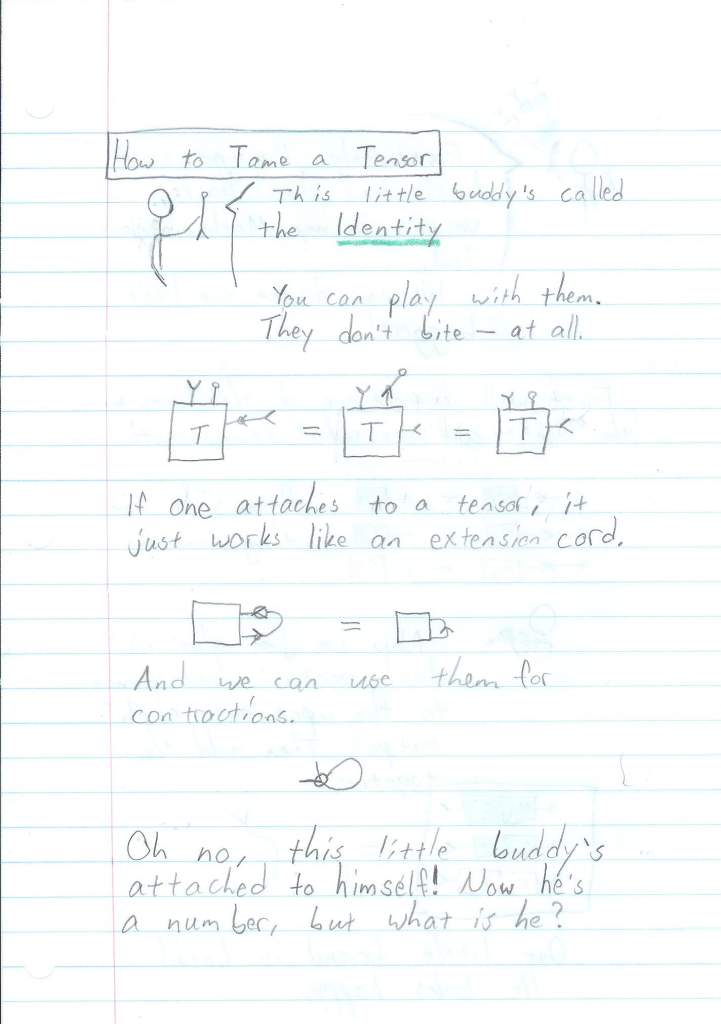 How to Tame a Tensor
This little buddy's called
the Identity
You can play with them.
They don't bite — at all.
T = T = T
If one attaches to a tensor, it
just works like an extension cord.
=
And we can use them for
contractions.
Oh no, this little buddy's
attached to himself! Now he's
a number, but what is he?